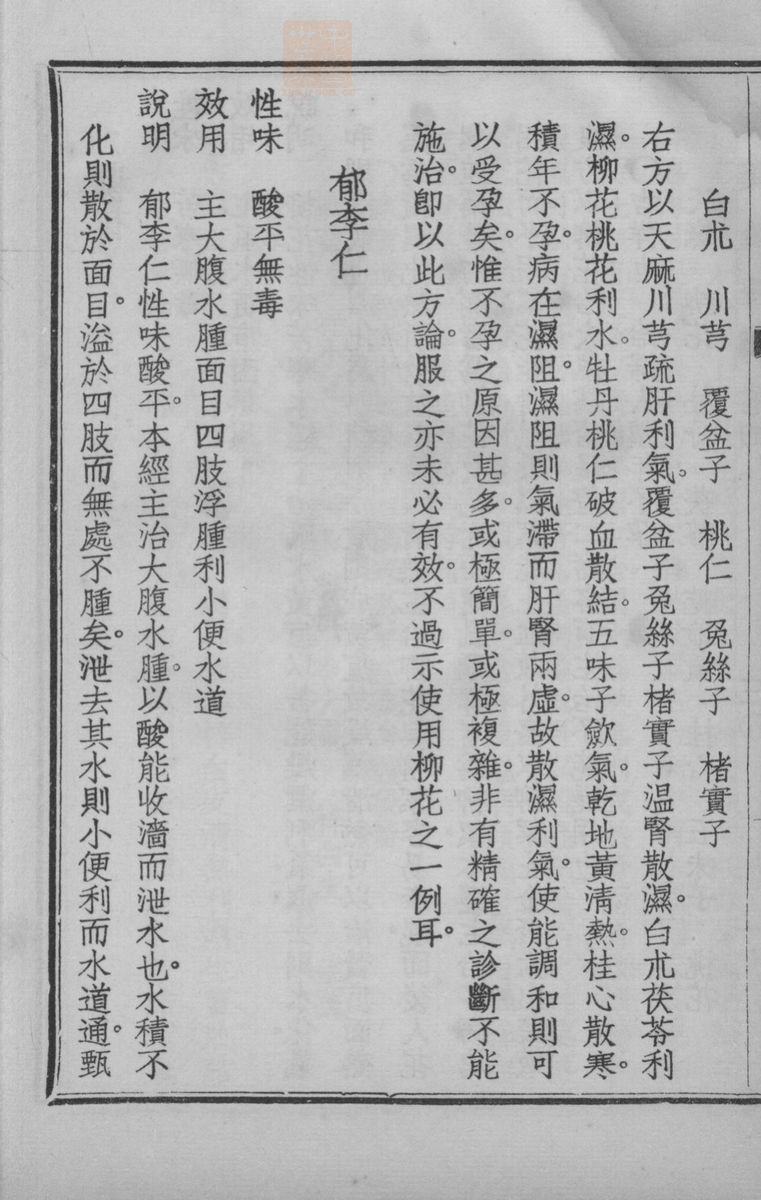 白朮　川芎　覆盆子　桃仁　兔絲子　楮實子
右方以天麻川芎疏肝利氣。覆盆子兔絲子楮實子温腎散濕。白朮茯苓利
濕。柳花桃花利水。牡丹桃仁破血散結。五味子斂氣。乾地黃清熱。桂心散寒。
積年不孕。病在濕阻。濕阻則氣滯而肝腎兩虛。故散濕利氣。使能調和則可
以受孕矣。惟不孕之原因甚多。或極簡單。或極複雜。非有精確之診斷不能
施治。卽以此方論。服之亦未必有效。不過示使用柳花之一例耳。
郁李仁
性味　酸平無毒
效用　主大腹水腫面目四肢浮腫利小便水道
說明　郁李仁性味酸平。本經主治大腹水腫。以酸能收濇而泄水也。水積不
化則散於面目。溢於四肢而無處不腫矣。泄去其水則小便利而水道通。甄